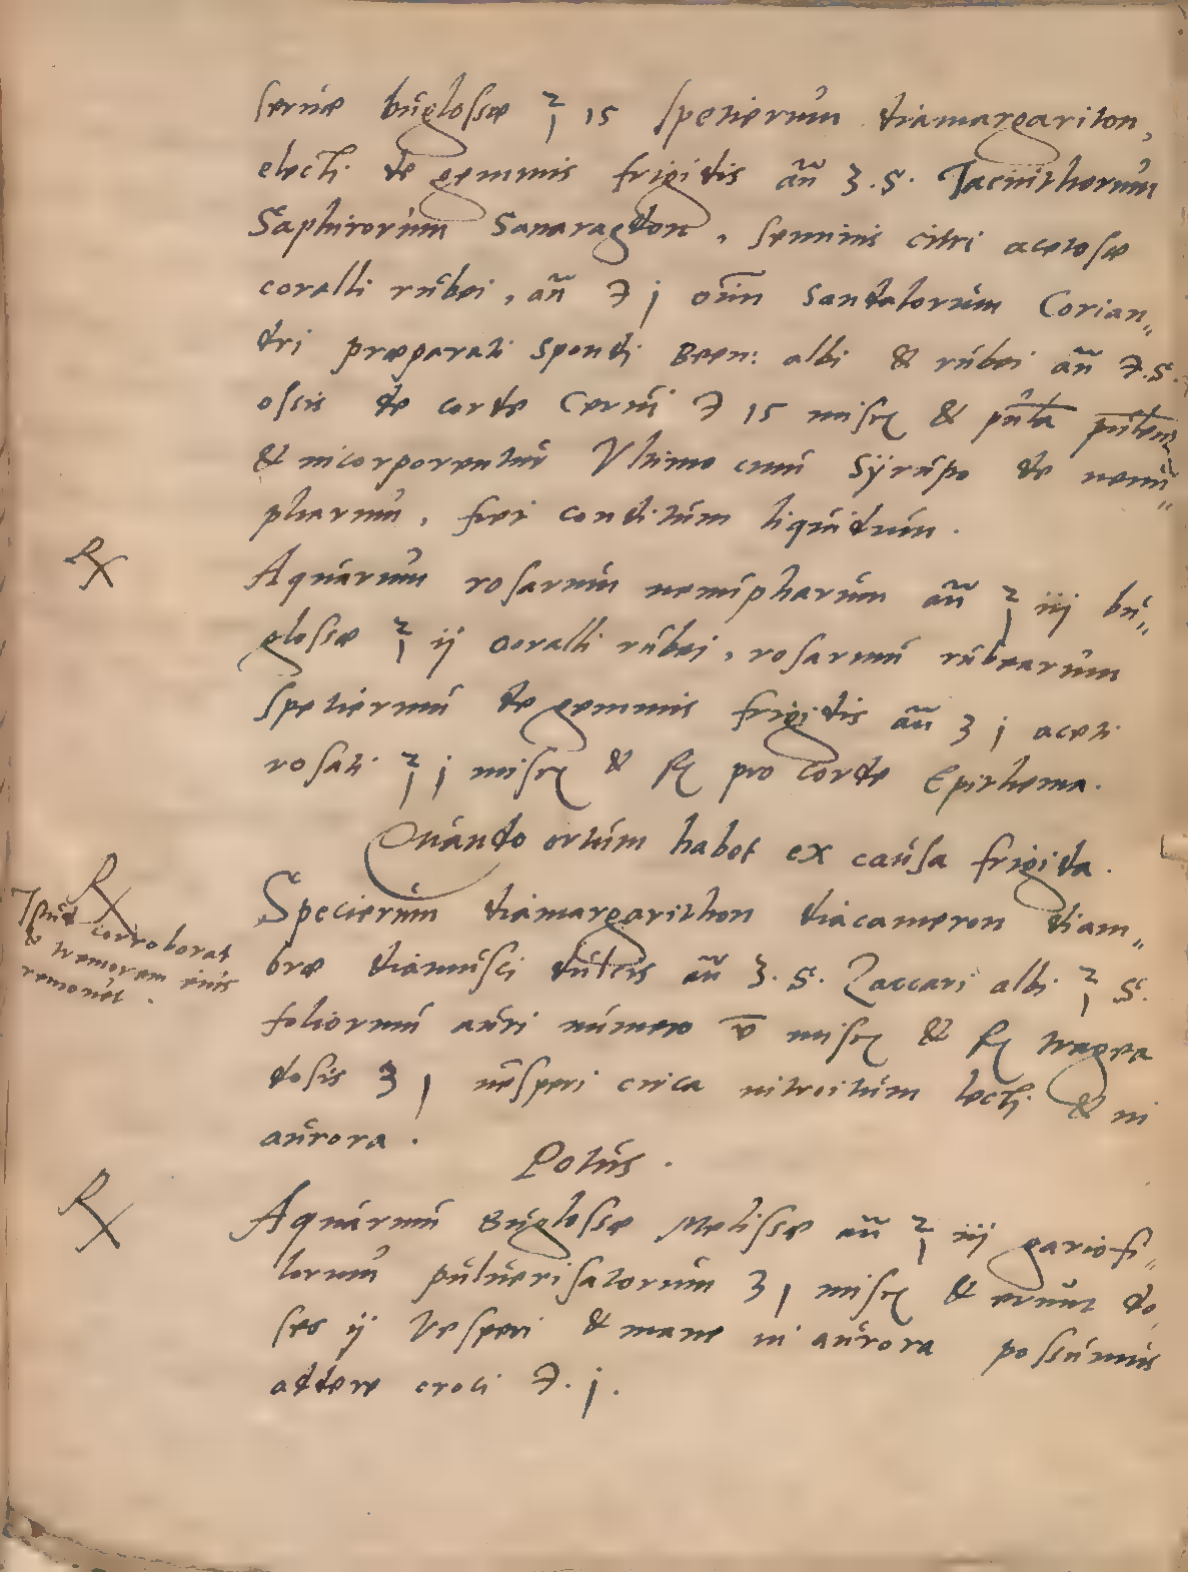 seruæ buglossæ ℥ 1s spetierum diamargariton,
electi de gemmis frigidis añ ʒ.s. Jacinthorum
Saphirorum Samaragdon, seminis citri acetosæ
coralli rubei, añ ℈ j oium sandalorum Corian„
dri præparati spondi Been: albi & rubei añ ℈.s.
ossis de corde Cerui ℈ 1s misce &
& incorporentur Vltimo cum Syrupo de nenu„
pharum, fiet conditum liquidum.
℞ Aquarum rosarum nenupharum añ ℥ iij bu„
glossæ ℥ ij coralli rubei, rosarum rubearum
spetierum de gemmis frigidis añ ʒ j aceti
rosati ℥ j misce & f. pro corde Epithema.
Quando ortum habet ex causa frigida.
℞ Specierum diamargarithon diacameron diam„
bræ diamusci dulcis añ ʒ.s. Zaccari albi ℥ s.
foliorum auri numero v misce & f. tragea
dosis ʒ j uesperi circa introitum lecti & in
aurora.
Istud corroborat
& tremorem eius
remouet.
Potus.
℞ Aquarum Buglossæ Melissæ añ ℥ iij gariofi„
lorum puluerisatorum ʒ j misce & erunt do„
ses ij Vesperi & mane in aurora possumus
addere croci ℈.j.